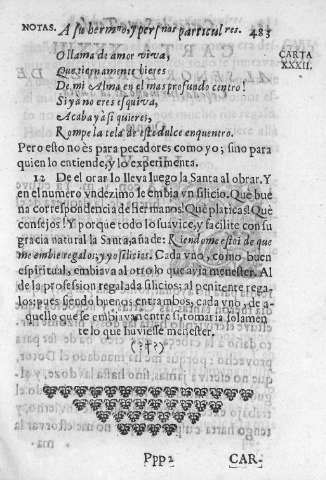 NOTAS. A su hermano, y personas particulares. 483
CARTA
XXXII.
O llama de amor viva,
Que tiernamente hieres
De mi Alma en el mas profundo centro!
Si ya no eres esquiva,
Acaba ya si quieres,
Rompe la tela de este dulce enquentro.
Pero esto no ès para pecadores como yo; sino para
quien lo entiende, y lo experimenta.
12 De el orar lo lleva luego la Santa al obrar. Y
en el numero vndezimo le embia vn silicio. Què bue
na correspondencia de Hermanos! Què platicas! Què
consejos! Y porque todo lo suavice, y facilite con su
gracia natural la Santa, añade: Riendome estoi de que
me embie regalos, y yo silicios. Cada vno, como buen
espiritual, embiava al otro lo que avia menester. Al
de la profession regalada silicios; al penitente rega-
los: pues siendo buenos entrambos, cada vno, de a-
quello que se embiavan entre si, tomaria solamen-
te lo que huviesse menester.
(?†?)
Ppp2 CAR-